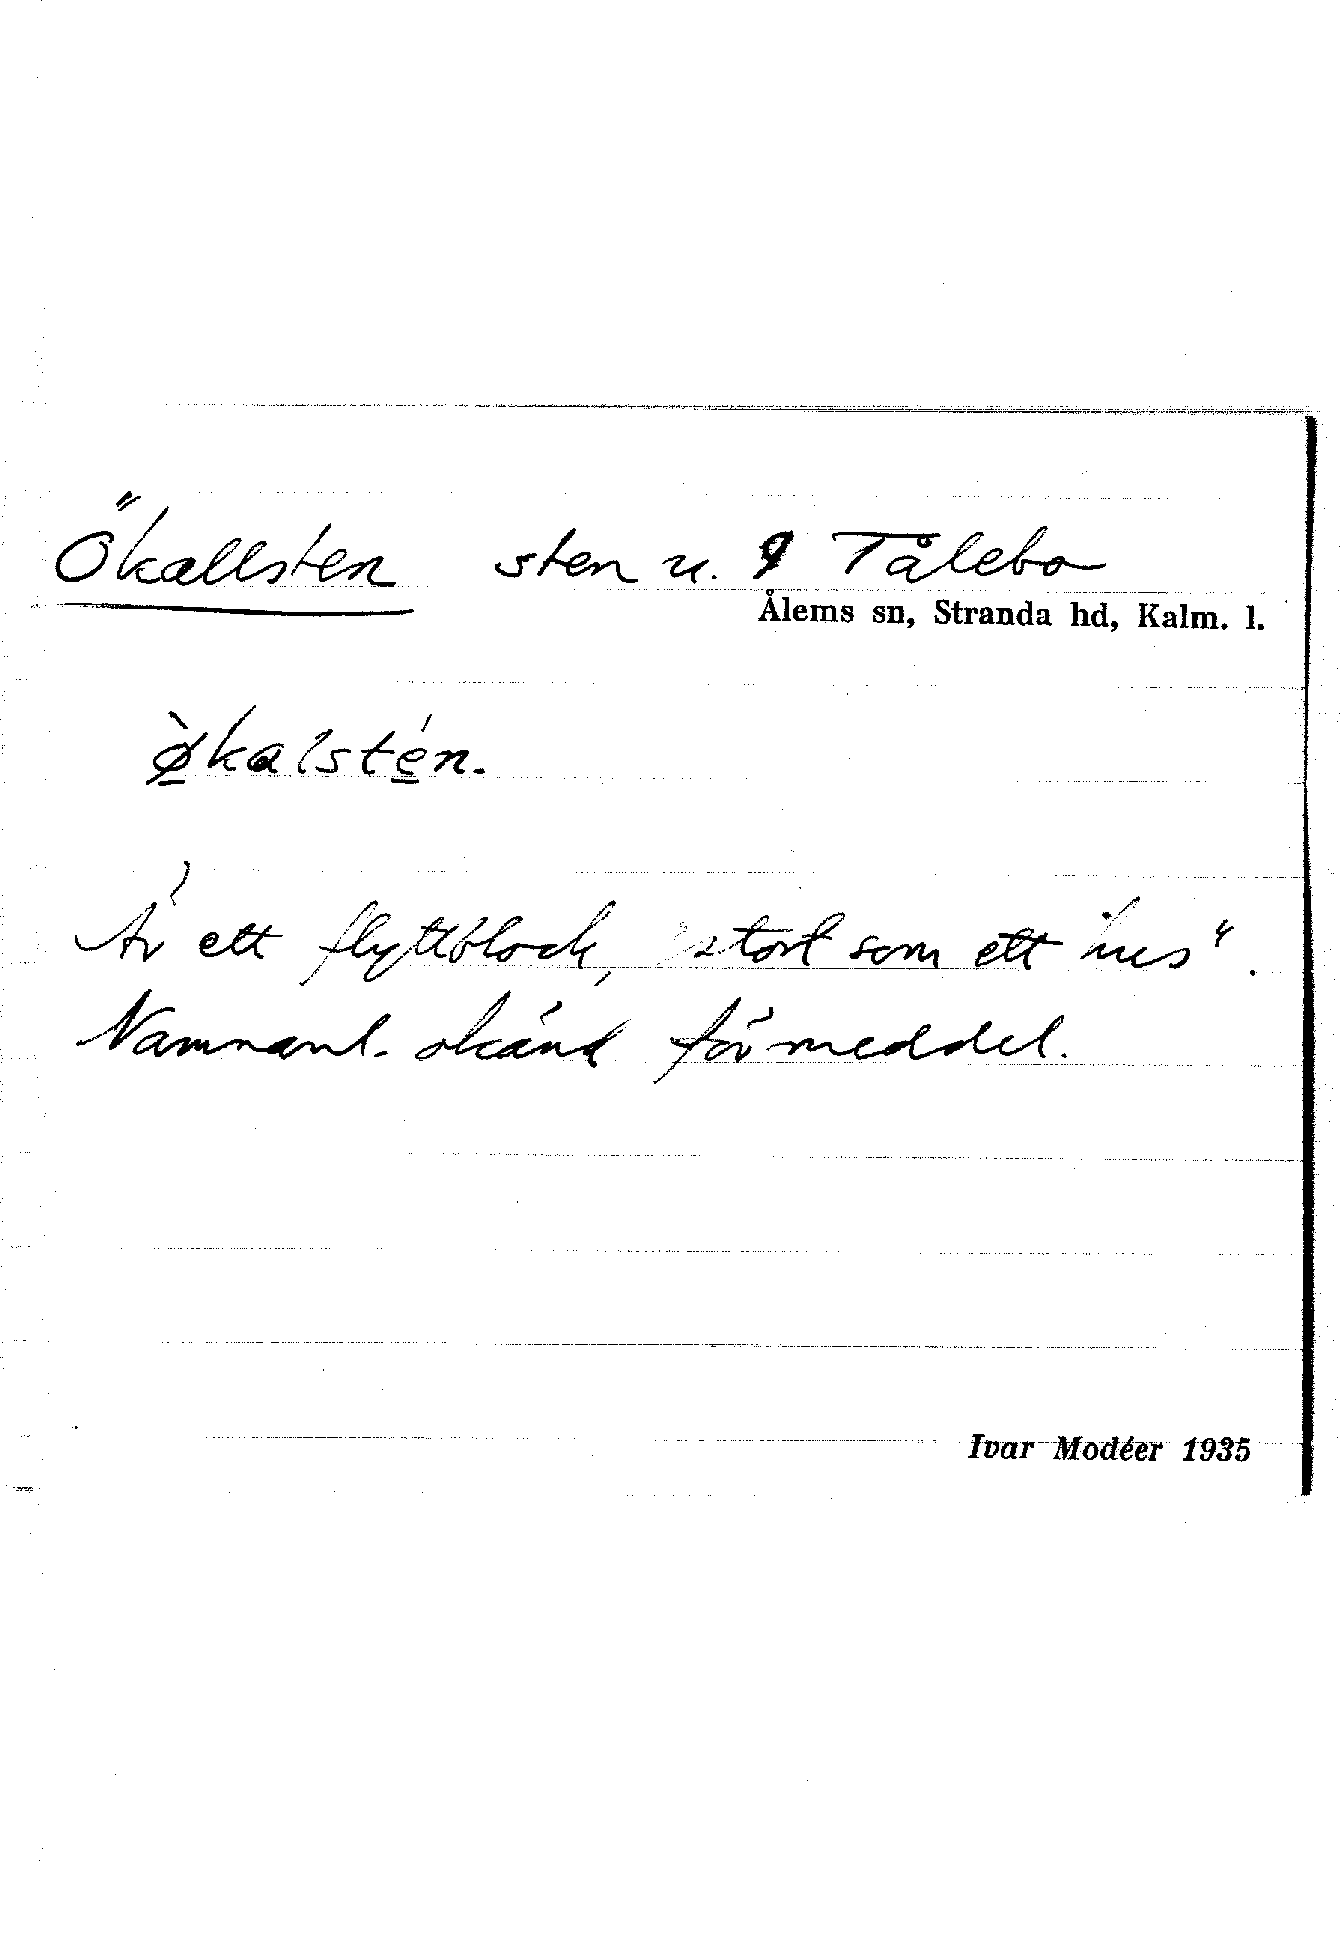 Ökallsten sten u. Tålebo
Ålems sn, Stranda hd, Kalm. l.
ø̀kalstén.
Är ett flyttblock, "stort som ett hus".
Namnanl. okänd för meddel.
Ivar Modéer 1935